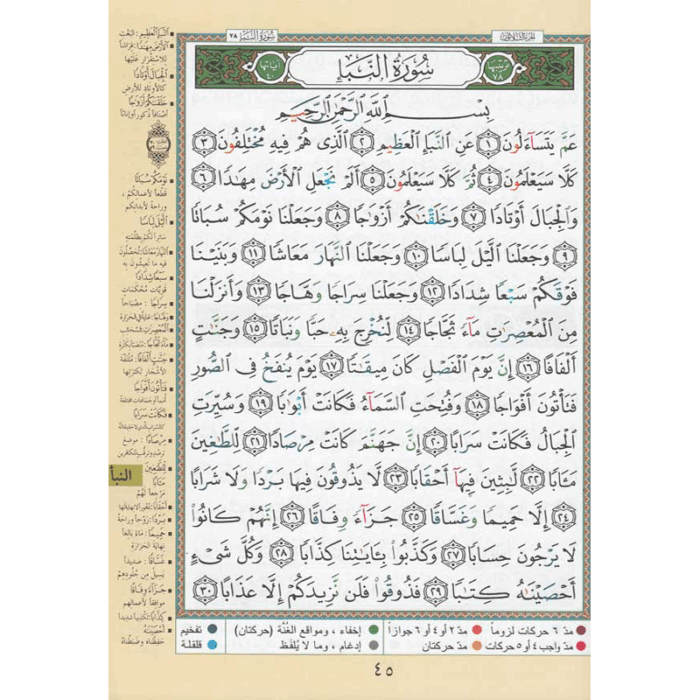 الجزء الثلاثون
سورة النبإ ٧٨
ترتيبها ٧٨
سُورَةُ النَّبَإِ
آياتها ٤٠
بِسْمِ اللَّهِ الرَّحْمَٰنِ الرَّحِيمِ
عَمَّ يَتَسَاءَلُونَ ١ عَنِ النَّبَإِ الْعَظِيمِ ٢ الَّذِي هُمْ فِيهِ مُخْتَلِفُونَ ٣
كَلَّا سَيَعْلَمُونَ ٤ ثُمَّ كَلَّا سَيَعْلَمُونَ ٥ أَلَمْ نَجْعَلِ الْأَرْضَ مِهَادًا ٦
وَالْجِبَالَ أَوْتَادًا ٧ وَخَلَقْنَاكُمْ أَزْوَاجًا ٨ وَجَعَلْنَا نَوْمَكُمْ سُبَاتًا
٩ وَجَعَلْنَا اللَّيْلَ لِبَاسًا ١٠ وَجَعَلْنَا النَّهَارَ مَعَاشًا ١١ وَبَنَيْنَا
فَوْقَكُمْ سَبْعًا شِدَادًا ١٢ وَجَعَلْنَا سِرَاجًا وَهَّاجًا ١٣ وَأَنزَلْنَا
مِنَ الْمُعْصِرَاتِ مَاءً ثَجَّاجًا ١٤ لِّنُخْرِجَ بِهِ حَبًّا وَنَبَاتًا ١٥ وَجَنَّاتٍ
أَلْفَافًا ١٦ إِنَّ يَوْمَ الْفَصْلِ كَانَ مِيقَاتًا ١٧ يَوْمَ يُنفَخُ فِي الصُّورِ
فَتَأْتُونَ أَفْوَاجًا ١٨ وَفُتِحَتِ السَّمَاءُ فَكَانَتْ أَبْوَابًا ١٩ وَسُيِّرَتِ
الْجِبَالُ فَكَانَتْ سَرَابًا ٢٠ إِنَّ جَهَنَّمَ كَانَتْ مِرْصَادًا ٢١ لِّلطَّاغِينَ
مَآبًا ٢٢ لَّابِثِينَ فِيهَا أَحْقَابًا ٢٣ لَّا يَذُوقُونَ فِيهَا بَرْدًا وَلَا شَرَابًا
٢٤ إِلَّا حَمِيمًا وَغَسَّاقًا ٢٥ جَزَاءً وِفَاقًا ٢٦ إِنَّهُمْ كَانُوا
لَا يَرْجُونَ حِسَابًا ٢٧ وَكَذَّبُوا بِآيَاتِنَا كِذَّابًا ٢٨ وَكُلَّ شَيْءٍ
أَحْصَيْنَاهُ كِتَابًا ٢٩ فَذُوقُوا فَلَن نَّزِيدَكُمْ إِلَّا عَذَابًا ٣٠
النبأ العظيم: البعث
الأرض مهادًا: فراشًا
للاستقرار عليها
الجبال أوتادًا
كالأوتاد للأرض
خلقناكم أزواجًا
أصنافًا ذكورًا وإناثًا
نومكم سباتًا
قطعًا لأعمالكم،
وراحة لأبدانكم
الليل لباسًا
ساترًا لكم بظلمته
النهار معاشًا: تحصلون
فيه ما تعيشون به
سبعًا شدادًا
قويات محكمات
سراجًا: مصباحًا
وهاجًا: غاية في الحرارة
المعصرات: السحائب
جنات ألفافًا: ملتفة
الأشجار لكثرتها
فتأتون أفواجًا
فكانت سرابًا
مرصادًا: موضع
ترصد وترقب للكافرين
للطاغين
مآبًا
مرجعًا لهم
أحقابًا: دهورًا لا نهاية لها
بردًا: روحًا وراحة
حميمًا: ماءً بالغًا
نهاية الحرارة
غساقًا: صديدًا
يسيل من جلودهم
جزاء وفاقًا
موافقًا لأعمالهم
كذابًا: تكذيبًا شديدًا
أحصيناه
حفظناه وضبطناه
النبأ
مدّ ٦ حركات لزوماً
مدّ ٢ أو ٤ أو ٦ جوازاً
إخفاء، ومواقع الغُنَّة (حركتان)
تفخيم
مدّ واجب ٤ أو ٥ حركات
مدّ حركتان
إدغام، وما لا يُلفَظ
قلقلة
٤٥